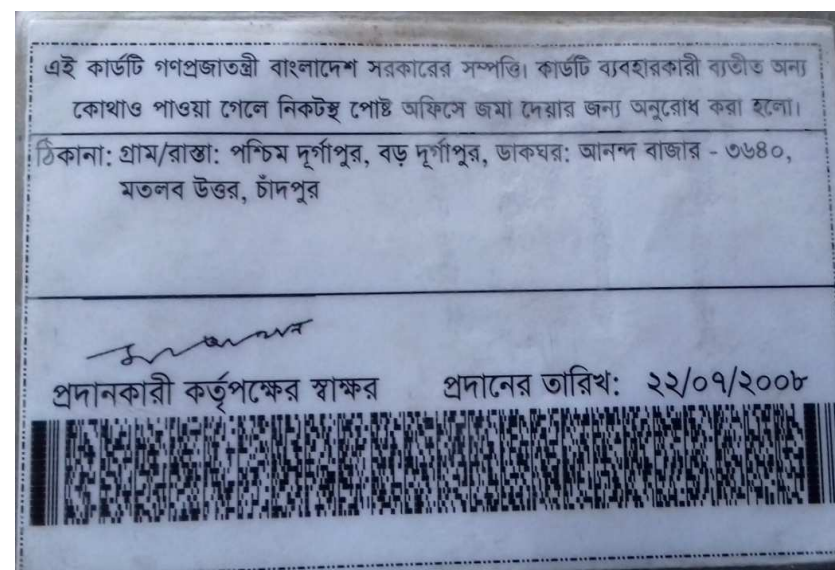 এই কার্ডটি গণপ্রজাতন্ত্রী বাংলাদেশ সরকারের সম্পত্তি। কার্ডটি ব্যবহারকারী ব্যতীত অন্য
কোথাও পাওয়া গেলে নিকটস্থ পোষ্ট অফিসে জমা দেয়ার জন্য অনুরোধ করা হলো।
ঠিকানা: গ্রাম/রাস্তা: পশ্চিম দূর্গাপুর, বড় দূর্গাপুর, ডাকঘর: আনন্দ বাজার - ৩৬৪০,
মতলব উত্তর, চাঁদপুর
প্রদানকারী কর্তৃপক্ষের স্বাক্ষর প্রদানের তারিখ: ২২/০৭/২০০৮